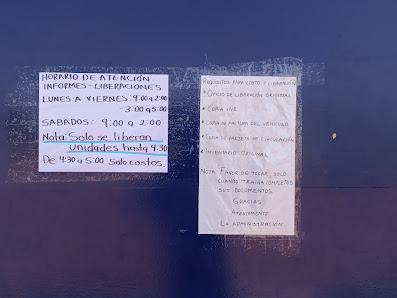 HORARIO DE ATENCIÓN
INFORMES - LIBERACIONES
LUNES A VIERNES: 9:00 a 2:00
- 3:00 a 5:00
SABADOS: 9:00 a 2:00
Nota: Solo se liberan
Unidades hasta 4:30
De 4:30 a 5:00 Solo costos.
REQUISITOS PARA COSTO Y LIBERACIÓN
* OFICIO DE LIBERACIÓN ORIGINAL
* COPIA INE
* COPIA DE FACTURA DEL VEHÍCULO
* COPIA DE TARJETA DE CIRCULACIÓN
* INVENTARIO ORIGINAL
NOTA: FAVOR DE TOCAR, SOLO
CUANDO TRAIGA COMPLETOS
SUS DOCUMENTOS.
GRACIAS
ATENTAMENTE
LA ADMINISTRACIÓN